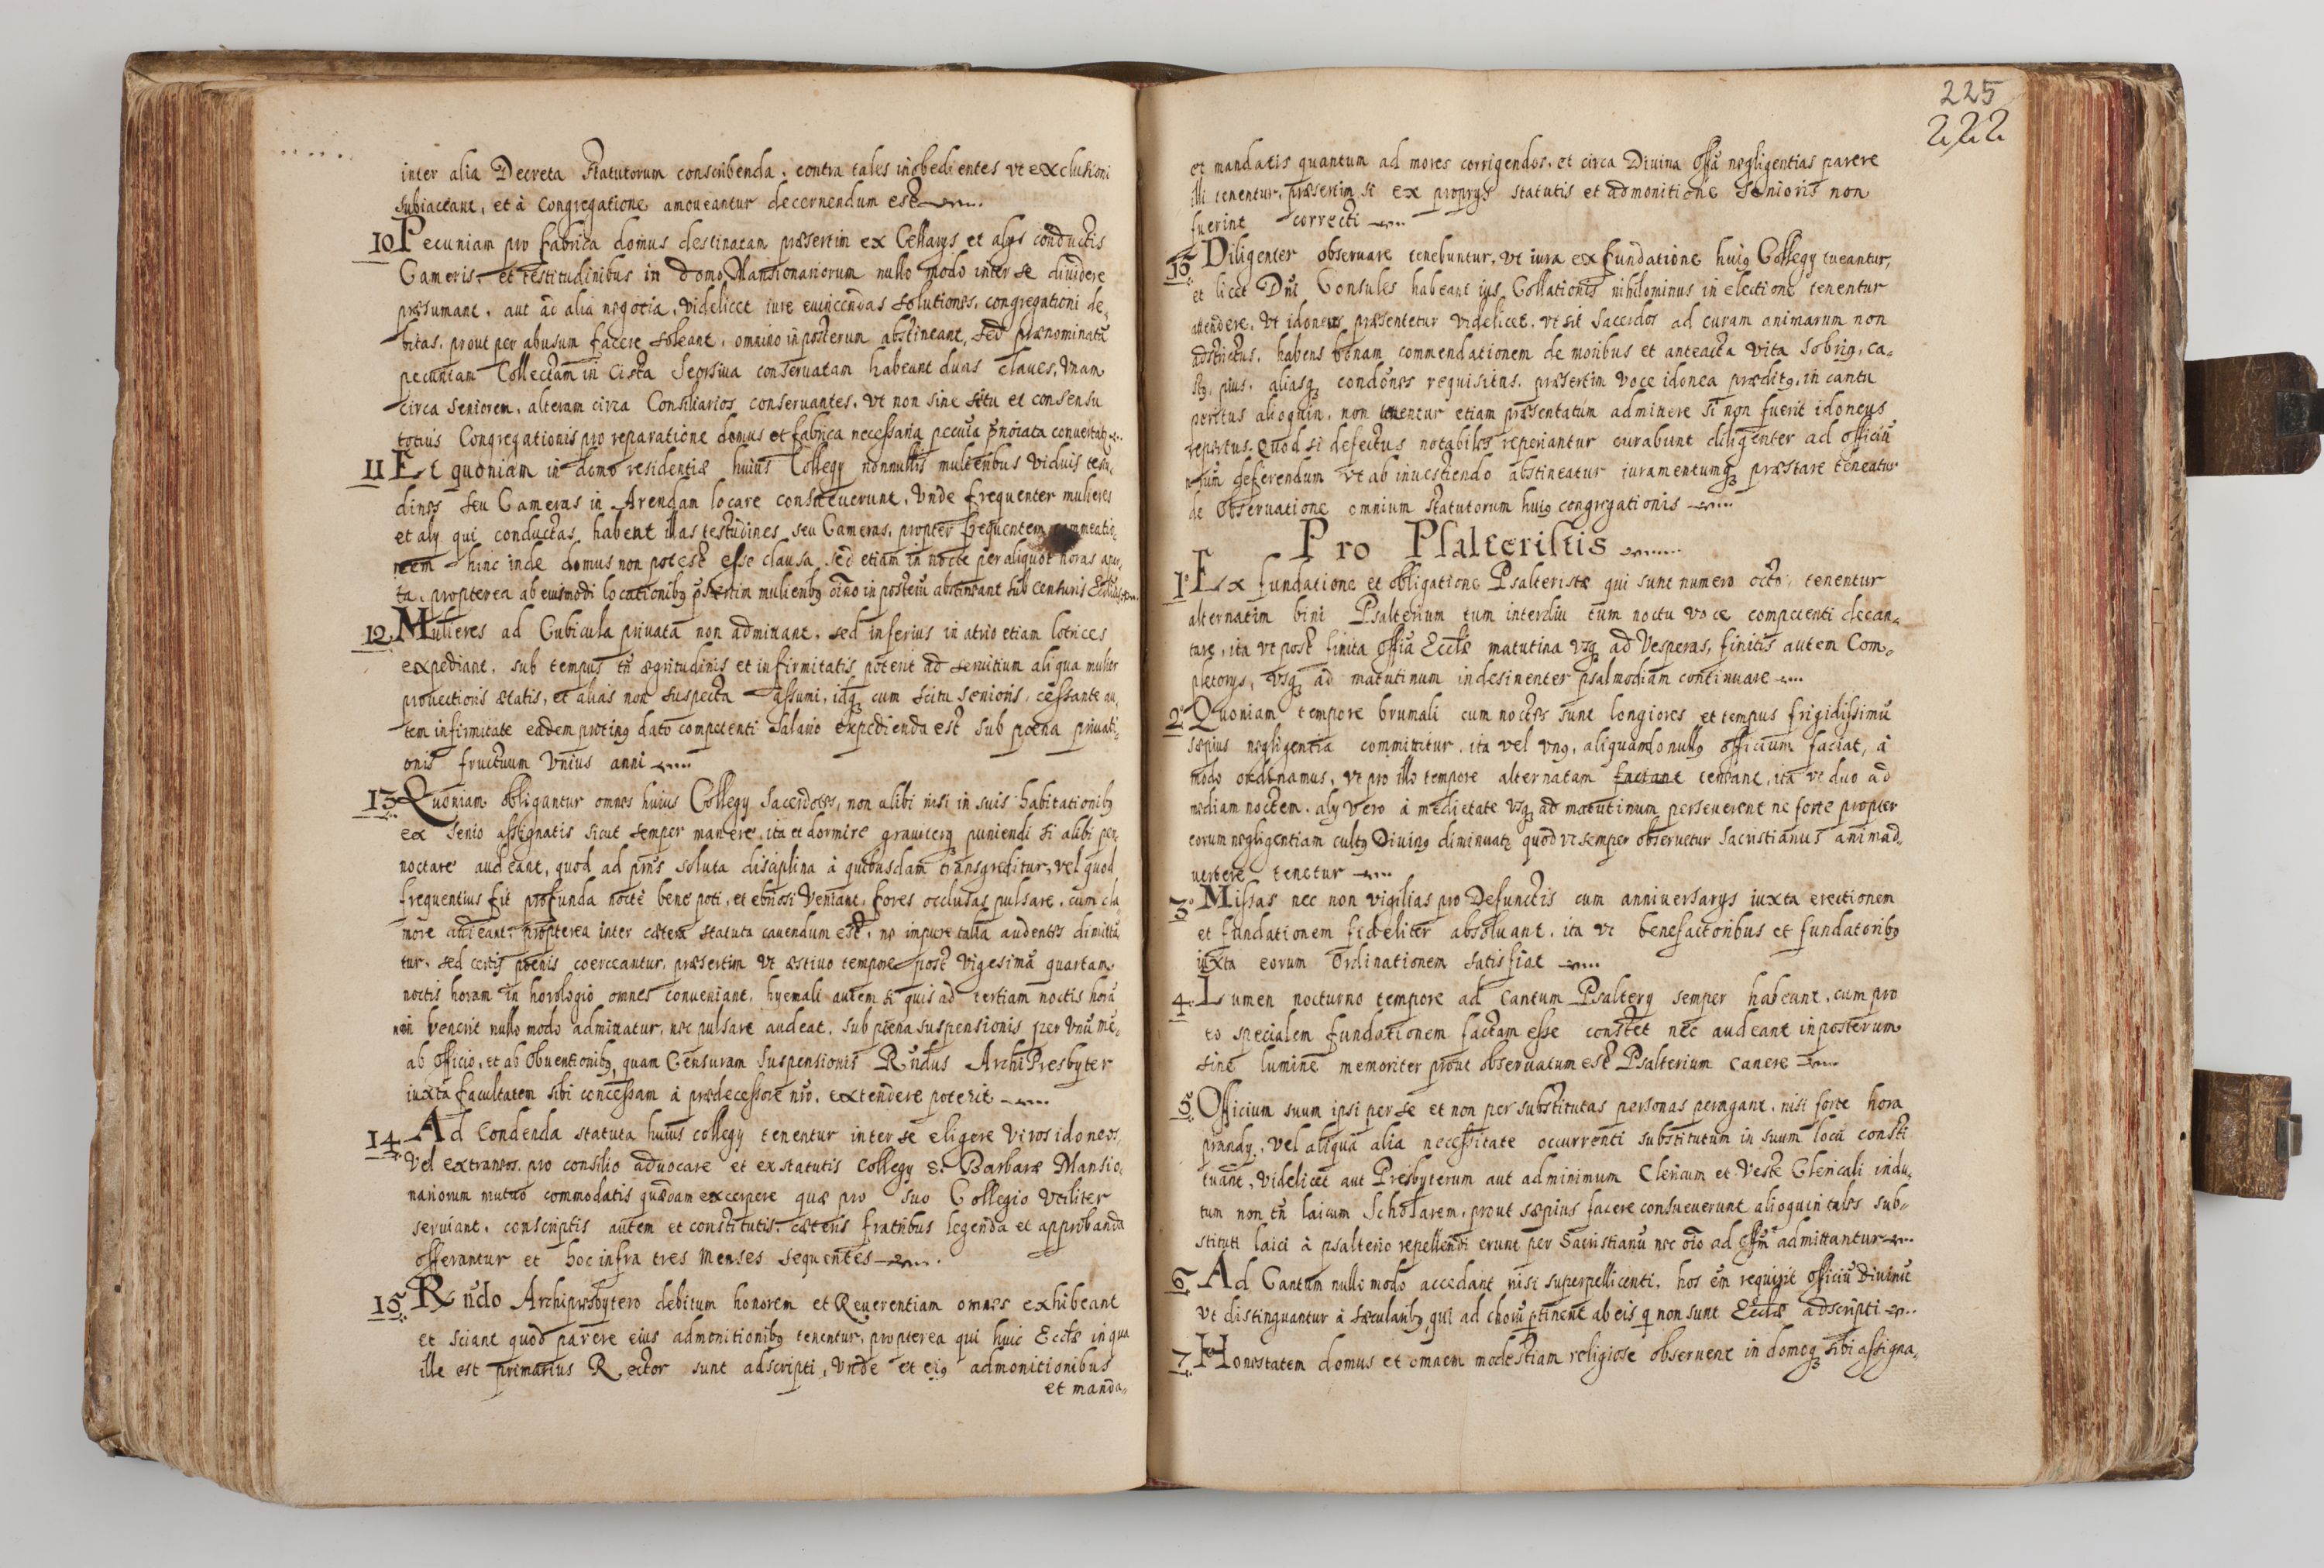 inter alia Decreta Statutorum conscribenda, contra tales inobedientes vt exclusioni
subiaceant, et à Congregatione amoueantur decernendum est
10 Pecuniam pro fabrica domus destinatam præsertim ex Cellarys et alys conductis
Cameris et testitudinibus in domo Mansionariorum nullo modo inter se diuidere
præsumant, aut ad alia negotia, videlicet iure euincendas solutiones, congregationi de,
bitas, prout per abusum facere soleant, omnino inposterum abstineant, sed prænominatã
pecuniam Collectam in Cista Seorsiua conseruatam habeant duas claues, Vnam
circa Seniorem, alteram circa Consiliarios conseruantes, vt non sine situ et consensu
totius Congregationis pro reparatione domus et fabrica necessaria pecuïa p̃noïata conuertatʒ
11 Et quoniam in domo residentiæ huius Collegy nonnullis mulieribus viduis testu,
dines seu Cameras in Arendam locare consueuerunt, Vnde frequenter mulieres
et aly qui conductas habent illas testudines seu Cameras, propter frequentem commeatio,
nem hinc inde domus non potest esse clausa, sed etiam in nocte per aliquot horas aper,
ta, propterea ab eiusmodi locationibꝰ p̃sertim mulieribꝰ oĩno in posterũ abstineant sub Censuris Ecclĩas.
12. Mulieres ad Cubicula priuata non admittant, sed inferius in atrio etiam lotrices
expediant, sub tempus tñ ægritudinis et infirmitatis poterit ad seruitium aliqua mulier
prouectioris ætatis, et alias non suspecta assumi, idqʒ cum scitu senioris, cessante au,
tem infirmitate eadem protinꝰ dato competenti Salario expedienda est sub poena priuati,
onis fructuum Vnius anni
13. Quoniam obligantur omnes huius Collegy Sacerdotes, non alibi nisi in suis habitationibꝰ
ex senio assignatis sicut semper manere, ita et dormire grauiterqʒ puniendi si alibi per,
noctare audeant, quod ad pñs soluta disciplina à quibusdam transgreditur, vel quod
frequentius fit profunda nocte bene poti, et ebriosi Veniant, fores occlusas pulsare, cum cla
more audeant, propterea inter cætera statuta cauendum est, ne impune talia audentes dimittã
tur, sed certis poenis coerceantur, præsertim vt æstiuo tempore post vigesimã quartam
noctis horam in horologio omnes conueniant, hyemali autem si quis ad tertiam noctis horã
non venerit nullo modo admittatur, nec pulsare audeat, sub pœna suspensionis per Vnũ mẽ,
ab officio, et ab obuentionibꝰ, quam Censuram Suspensionis Rñdus ArchiPresbyter
iuxta facultatem sibi concessam à prædecessore nr̃o, extendere poterit
14. Ad Condenda statuta huius collegy tenentur inter se eligere Viros idoneos,
Vel extraneos, pro consilio aduocare et ex statutis Collegy S. Barbaræ Mansio,
nariorum mutuo commodatis quædam excerpere quæ pro suo Collegio Vtiliter
seruiant, conscriptis autem et constitutis, cæteris fratribus legenda et approbanda
offerantur et hoc infra tres Menses sequentes
15. Rñdo Archipresbytero debitum honorem et Reuerentiam omnes exhibeant
et sciant quod parere eius admonitionibꝰ tenentur, propterea qui huic Eccłæ in qua
ille est primarius Rector sunt adscripti, Vnde et eiꝰ admonitionibus
et manda,,
225
222
et mandatis quantum ad mores corrigendos, et circa Diuina Offã negligentias parere
illi tenentur, præsertim si ex proprys statutis et admonitione Senioris non
fuerint correcti
16 Diligenter obseruare tenebuntur, vt iura ex fundatione huiꝰ Collegy tueantur,
et licet Dñi Consules habeant ius Collationis nihilominus in electione tenentur
attendere, vt idoneus præsentetur videlicet, vt sit Sacerdos ad curam animarum non
adstrictus, habens bonam commendationem de moribus et anteacta vita sobriꝰ, ca,
stꝰ, pius, aliasqʒ condões requisitas, præsertim voce idonea præditꝰ, in cantu
peritus alioquin, non tenentur etiam præsentatum admittere si non fuerit idoneus
repertus. Quod si defectus notabiles reperiantur curabunt diligenter ad officiũ
nr̃um deferendum vt ab inuestiendo abstineatur iuramentumqʒ præstare teneatur
de obseruatione omnium statutorum huiꝰ congregationis
Pro Psalteristis
1o Ex fundatione et obligatione Psalteristæ qui sunt numero octo, tenentur
alternatim bini Psalterium tum interdiu tum noctu voce competenti decan,
tare, ita vt post finita offia Ecclæ matutina vsqʒ ad Vesperas, finitis autem Com,
pletorys, vsqʒ ad matutinum indesinenter psalmodiam continuare
2o Quoniam tempore brumali cum noctes sunt longiores et tempus frigidissimũ
sæpius negligentia committitur, ita vel vnꝰ, aliquando nullꝰ officium faciat, à
modo ordinamus, vt pro illo tempore alternatam faciant teneant, ita vt duo ad
mediam noctem, aly vero à medietate vsqʒ ad matutinum perseuerent ne forte propter
eorum negligentiam cultꝰ Diuinꝰ diminuatʒ quod vt semper obseruetur Sacristianus animad,
uertere tenetur
3o Missas nec non vigilias pro Defunctis cum anniuersarys iuxta erectionem
et fundationem fideliter absoluant, ita vt benefactoribus et fundatoribꝰ
iuxta eorum ordinationem satisfiat
4. Lumen nocturno tempore ad Cantum Psaltery semper habeant, cum pro
eo specialem fundationem factam esse constet nec audeant inposterum
sine lumine memoriter prout obseruatum est Psalterium canere
5. Officium suum ipsi per se et non per substitutas personas peragant, nisi forte hora
prandy, vel aliqua alia necessitate occurrenti substitutum in suum locũ consti
tuant, videlicet aut Presbyterum aut adminimum Clericum et Veste Clericali indu,
tum non tñ laicum Scholarem, prout sæpius facere consueuerunt alioquin tales sub,
stituti laici à psalterio repellendi erunt per Sacristianũ nec oĩo ad offm̃ admittantur
6. Ad Cantum nullo modo accedant nisi superpellicenti, hos em̃ requirit officiũ diuinũ
vt distinguantur à sæcularibꝰ, qui ad chorũ ꝑtinent ab eis q̃ non sunt Ecclæ adscripti
7. Honestatem domus et omnem modestiam religiose obseruent in domoqʒ sibi assigna,